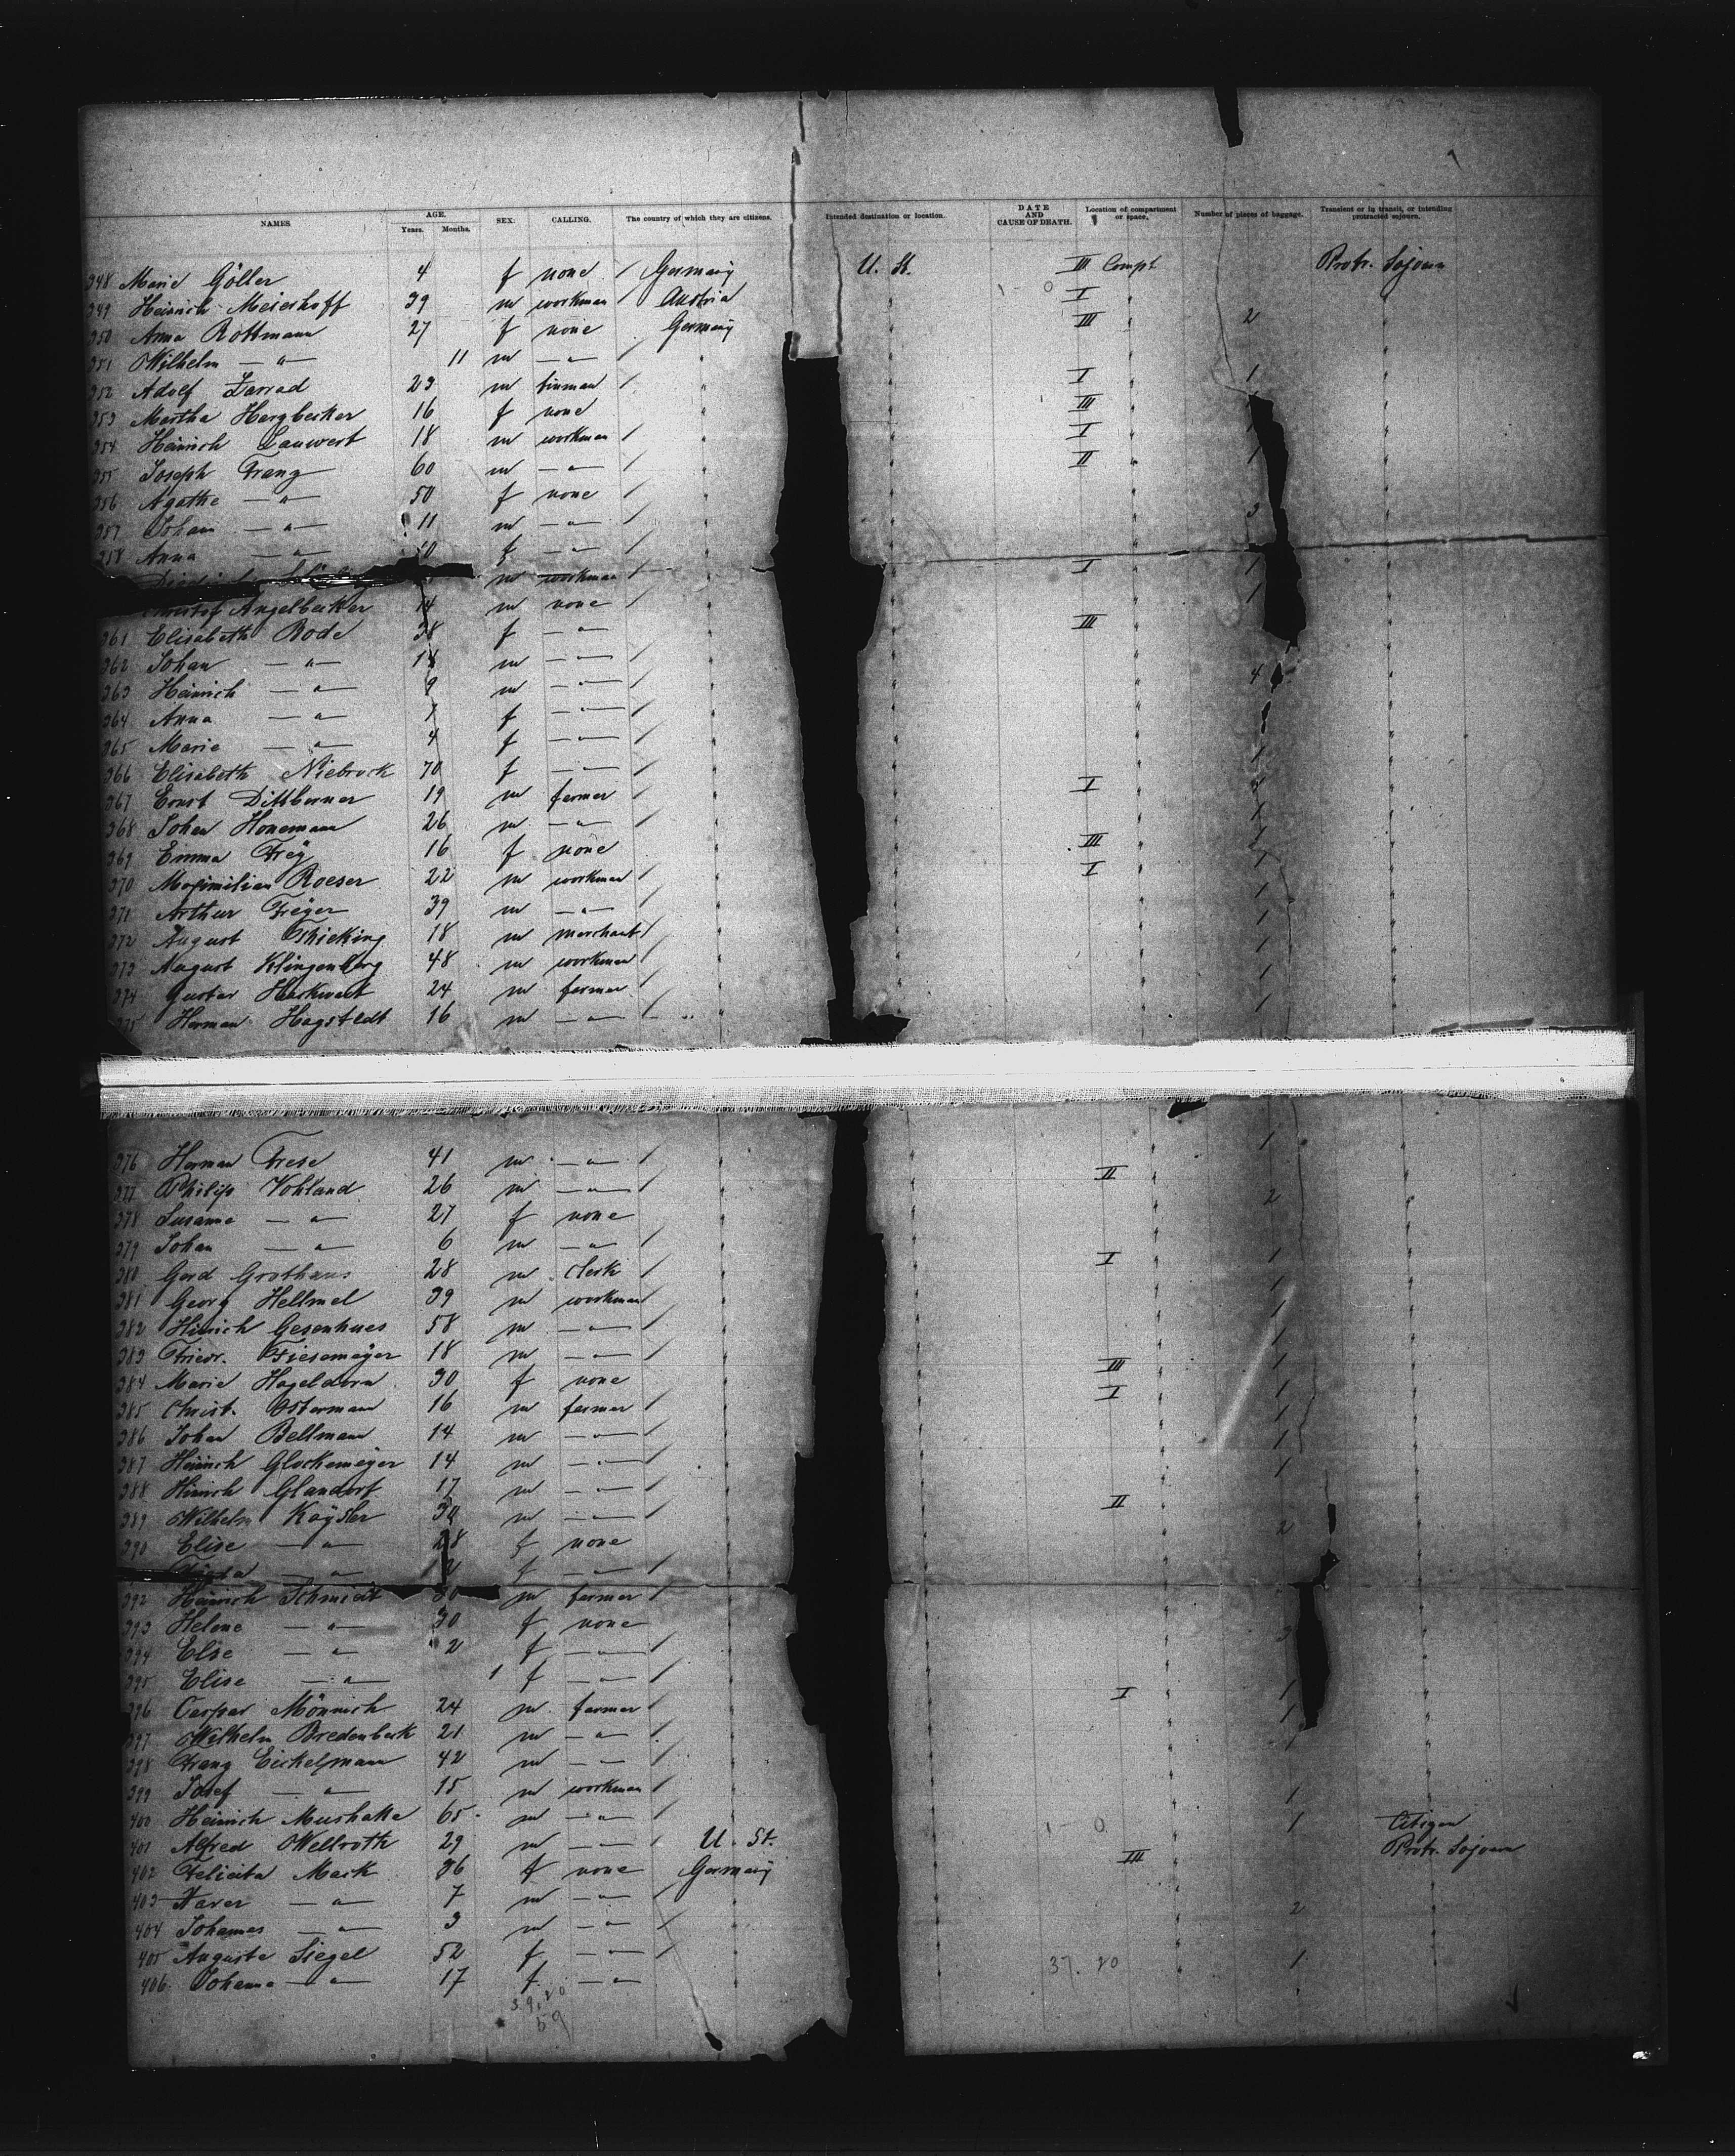 NAMES. AGE. Years. Months. SEX. CALLING. The country of which they are citizens. Intended destination or location. DATE AND CAUSE OF DEATH. Location of compartment or space. Number of pieces of baggage. Transient or in transit, or intending protracted sojourn.
348 Marie Göller 4 f none / Germany U. St. III Compt Protr. Sojourn
349 Heinrich Meierhoff 39 m workman / Austria 1 - 0 I "
350 Anna Rottmann 27 f none Germany III " 2
351 Wilhelm — " — 11 m — " — /
352 Adolf 29 m / " I " 1
353 Martha Hergbecker 16 f none " III "
354 Heinrich Lauwert 18 m workman / " I " 1
355 Joseph Franz 60 m — " — / " II " 1
356 Agathe — " — 50 f none /
357 Johan — " — 11 m — " — / 3
358 Anna — " — f — " — /
m workman / I " 1
Angelbecker 14 m none / 1
361 Elisabeth Bode 38 f — " — III "
362 Johan — " — 14 m — " — /
363 Heinrich — " — 9 m — " — / 4
364 Anna — " — f — " — /
365 Marie — " — 4 f — " — /
366 Elisabeth Niebrock 70 f — " — / 1
367 Ernst Dittberner 19 m farmer / I "
368 Johan Honemann 26 m — " — / 1
369 Emma Frey 16 f none III " 1
370 Maximilian Roeser 22 m workman / I " 1
371 Arthur Freyer 39 m — " — / 1
372 August 18 m merchant / 1
373 August Klingenberg 48 m workman / 1
374 Gustav Harkwart 24 m farmer / 1
375 Herman Hagstedt 16 m — " — / 1
376 Herman Frese 41 m — " — / 1
377 Philip Vohland 26 m — " — / II "
378 Susanne — " — 27 f none 2
379 Johan — " — 6 m — " — /
380 Gerd Grothaus 28 m clerk / I " 1
381 Georg Hellmel 39 m workman / 1
382 Hinrich Gesenhues 58 m — " — / 1
383 Friedr. Fiesemeyer 18 m — " — / 1
384 Marie Hageldorn 30 f none III " 1
385 Christ. Ostermann 16 m farmer / I " 1
386 Johan Bellmann 14 m — " — / 1
387 Heinrich Glockemeyer 14 m — " — / 1
388 Hinrich Glandorf 17 m — " — / 1
389 Wilhelm Kayser 30 m — " — / II "
390 Elise — " — 28 f none 2
— " — 2 f — " — /
392 Heinrich Schmidt 30 m farmer /
393 Helene — " — 30 f none 3
394 Else — " — 2 f — " — /
395 Elise — " — 1 f — " — /
396 Caspar Mönnich 24 m farmer / I " 1
397 Wilhelm Bredenbeck 21 m — " — / 1
398 Franz Eickelmann 42 m — " — / 1
399 Josef — " — 15 m workman /
400 Heinrich Mushake 65 m — " — / 1
401 Alfred Wellroth 29 m — " — / U. St. 1 - 0 1 Citizen
402 Felicita Mack 36 f none Germany III " Protr. Sojourn
403 Xaver — " — 7 m — " — /
404 Johannes — " — 3 m — " — / 2
405 Auguste Siegel 52 f — " — /
406 Johanna — " — 17 f — " — 37. 20 1
39.20
59